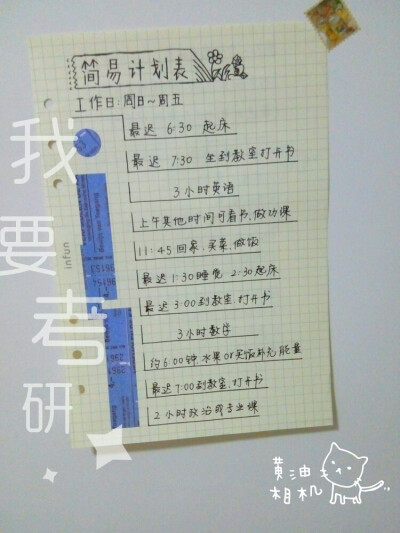 简易计划表
工作日:周日~周五
最迟 6:30 起床
最迟 7:30 坐到教室打开书
3小时英语
上午其他时间可看书,做功课
11:45 回家.买菜.做饭
最迟 1:30睡觉 2:30起床
最迟 3:00到教室.打开书
3小时数学
约6:00钟,水果or买饭补充能量
最迟 7:00到教室.打开书
2小时政治或专业课
我要考研
infun
黄油
相机